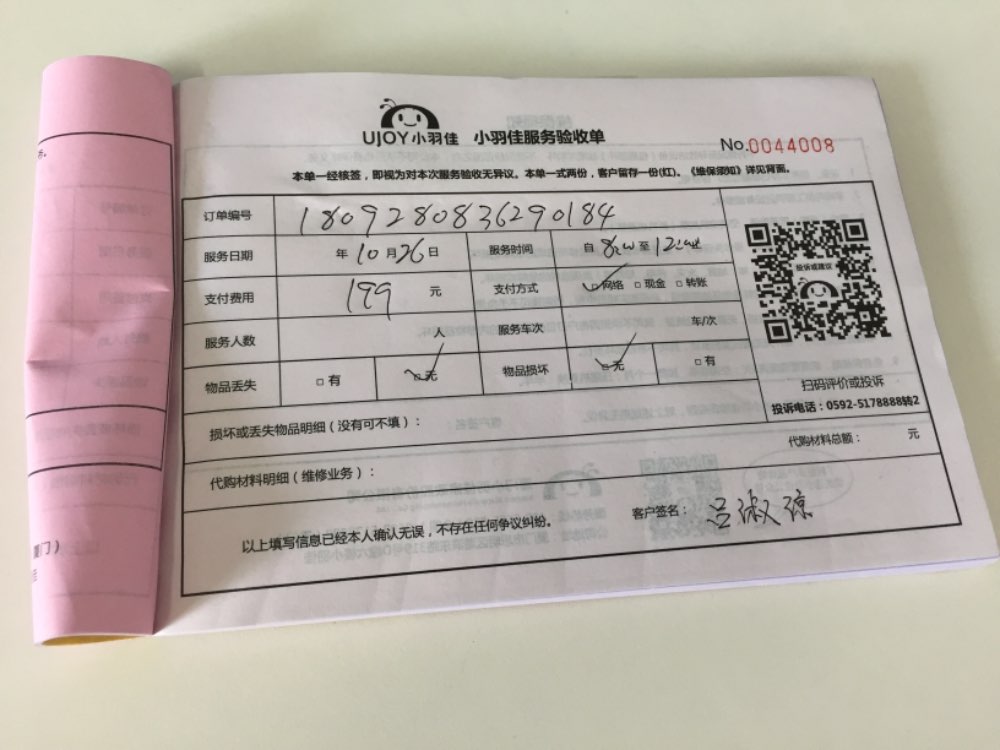 UJOY小羽佳 小羽佳服务验收单
No.0044008
本单一经核签，即视为对本次服务验收无异议。本单一式两份，客户留存一份(红)。《维保须知》详见背面。
订单编号 1809280836290184
服务日期 年 10 月 26 日 服务时间 自 8:00 至 12:00
支付费用 199 元 支付方式 ☑网络 □现金 □转账
服务人数 人 服务车次 车/次
物品丢失 □有 ☑无 物品损坏 ☑无 □有
投诉或建议
扫码评价或投诉
投诉电话：0592-5178888转2
损坏或丢失物品明细（没有可不填）：
代购材料总额： 元
代购材料明细（维修业务）：
以上填写信息已经本人确认无误，不存在任何争议纠纷。
客户签名： 吕淑琼
门）